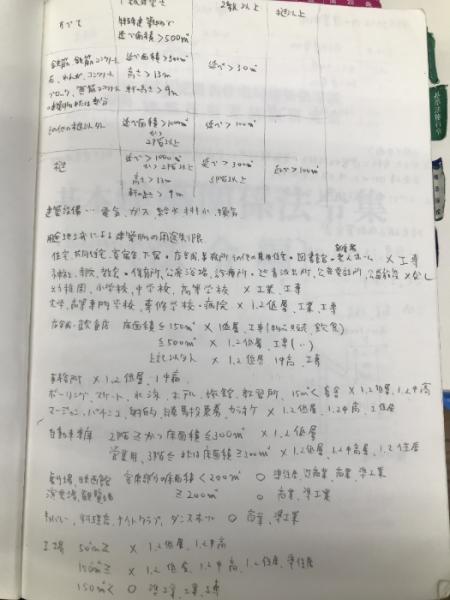 1級建築士 2級以上 木造以上
すべて 特殊建築物で
延べ面積>500㎡
鉄筋、鉄骨コンクリート 延べ面積>300㎡ 延べ>30㎡
石、れんが、コンクリート 高さ>13m
ブロック、無筋コンクリート 軒高さ>9m
その他の木以外 延べ面積>1000㎡ 延べ>100㎡
かつ
2階以上
木造 延べ>1000㎡ 延べ>300㎡ 延べ>100㎡
かつ2階以上 3階以上
高さ>13m
軒の高さ>9m
建築設備…電気、ガス 給水 排水、換気
用途地域による建築物の用途制限
住宅、共同住宅、寄宿舎、下宿・図書館・老人ホーム × 工専
神社、寺院、教会・保育所、公衆浴場、診療所・公衆電話所 × なし
幼稚園、小学校、中学校、高等学校 × 工業、工専
大学、高等専門学校、専修学校・病院 × 1.2低層、工業、工専
店舗・飲食店 床面積≦150㎡ × 1低層、工専(物販、飲食)
≦500㎡ × 1.2低層、工専(〃)
上記以外 × 1.2低層 1中高、工専
事務所 × 1.2低層、1中高
ボーリング、スケート、水泳、ホテル、旅館、教習所、15㎡<畜舎 × 1.2低層、1.2中高
マージャン、パチンコ、射的、カラオケ × 1.2低層、1.2中高、1住居
自動車車庫 2階≧かつ床面積≦300㎡ × 1.2低層
営業用、3階≦または床面積≧300㎡ × 1.2低層、1.2中高層、1.2住居
劇場、映画館 客席部分の床面積<200㎡ ○ 準住居、近商業、商業、準工業
演芸場、観覧場 ≧200㎡ ○ 商業、準工業
キャバレー、料理店、ナイトクラブ、ダンスホール ○ 商業、準工業
工場 50㎡≧ × 1.2低層、1.2中高
150㎡≧ × 1.2低層、1.2中高、1.2住居、準住居
150㎡< ○ 準工業、工業、工専